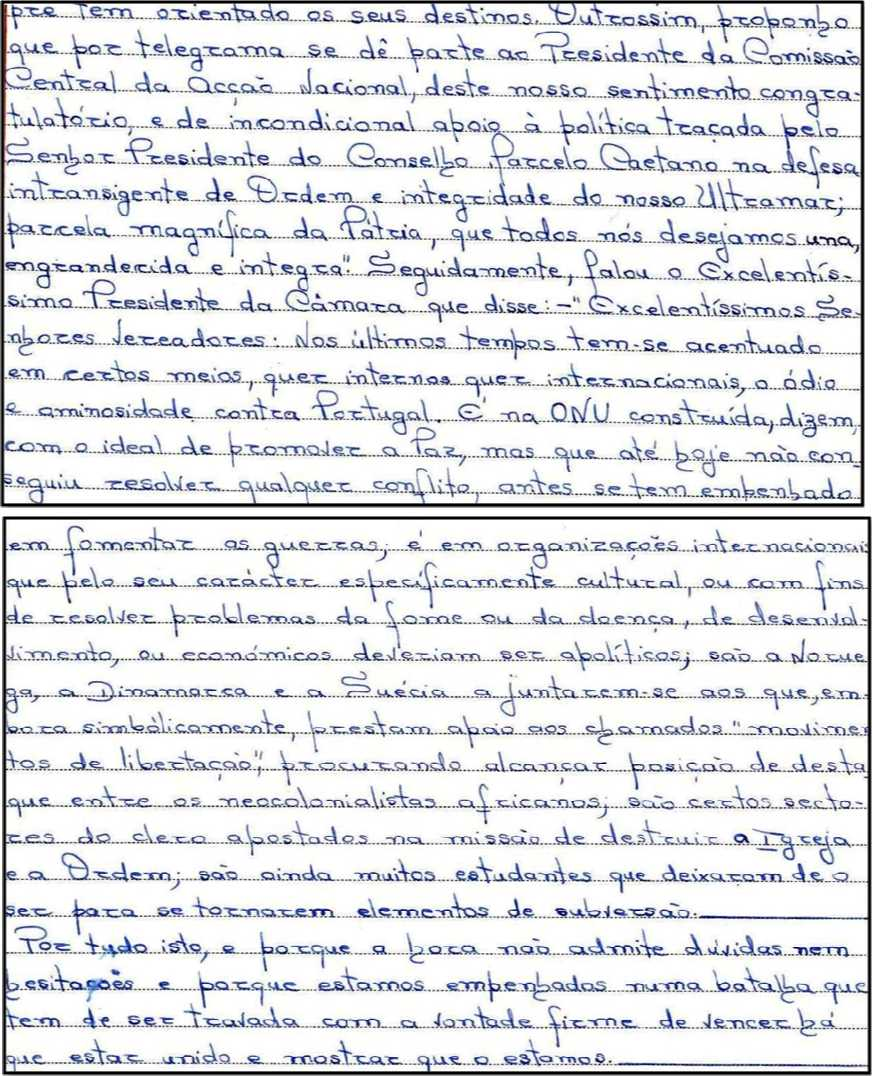 pre tem orientado os seus destinos. Outrossim, proponho
que por telegrama se dê parte ao Presidente da Comissão
Central da Acção Nacional, deste nosso sentimento congra-
tulatório, e de incondicional apoio à política traçada pelo
Senhor Presidente do Conselho Marcelo Caetano na defesa
intransigente de Ordem e integridade do nosso Ultramar;
parcela magnífica da Pátria, que todos nós desejamos una,
engrandecida e integra". Seguidamente, falou o Excelentís-
simo Presidente da Câmara que disse: -" Excelentíssimos Se-
nhores Vereadores: Nos últimos tempos tem-se acentuado
em certos meios, quer internos quer internacionais, o ódio
e aminosidade contra Portugal. É na ONU construída, dizem,
com o ideal de promover a Paz, mas que até hoje não con-
seguiu resolver qualquer conflito, antes se tem empenhado
em fomentar as guerras; é em organizações internacionais
que pelo seu carácter especificamente cultural, ou com fins
de resolver problemas da fome ou da doença, de desenvol-
vimento, ou económicos deveriam ser apolíticos; são a Norue
ga, a Dinamarca e a Suécia a juntarem-se aos que, em-
bora simbòlicamente, prestam apoio aos chamados "movimen
tos de libertação", procurando alcançar posição de desta
que entre os neocolonialistas africanos; são certos secto-
res do clero apostados na missão de destruir a Igreja
e a Ordem; são ainda muitos estudantes que deixaram de o
ser para se tornarem elementos de subversão.
Por tudo isto, e porque a hora não admite dúvidas nem
hesitações e porque estamos empenhados numa batalha que
tem de ser travada com a vontade firme de vencer há
que estar unido e mostrar que o estamos.